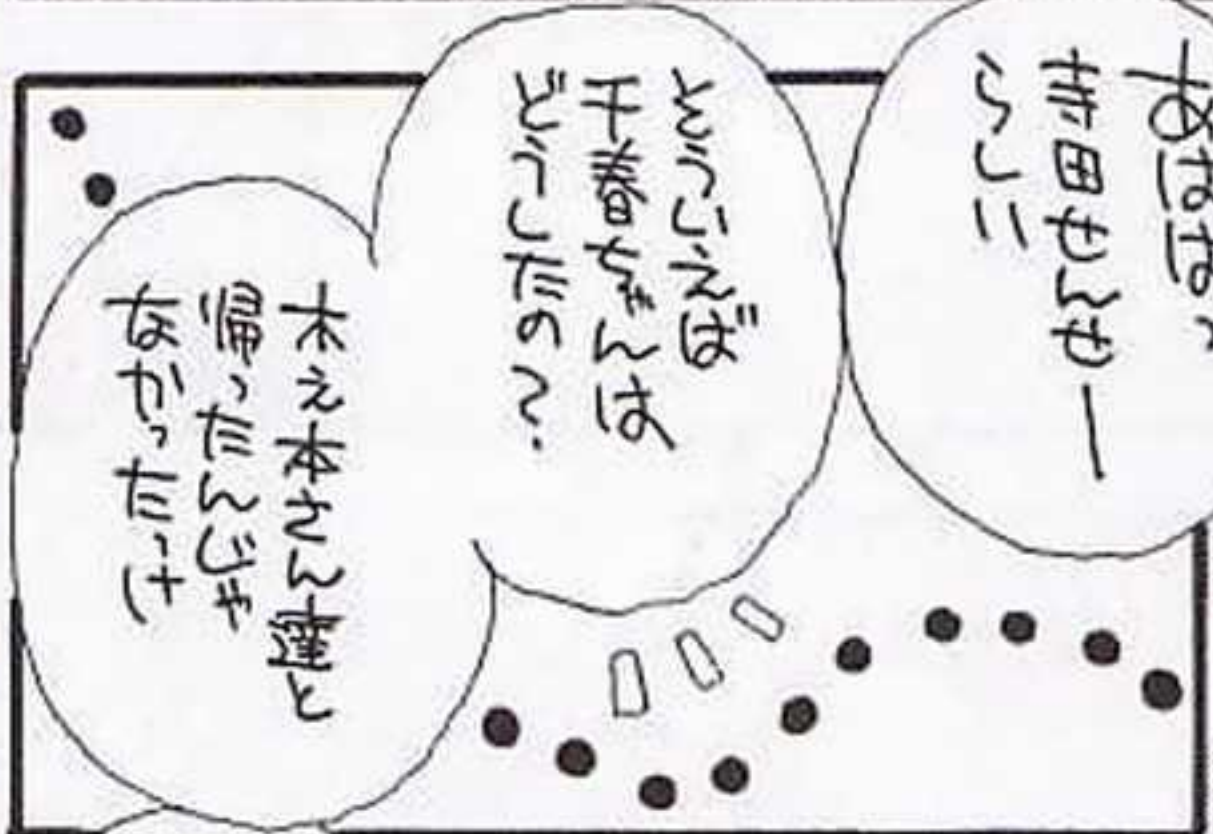 あははっ
寺田せんせー
らしい
そういえば
千春ちゃんは
どうしたの?
木之本さん達と
帰ったんじゃ
なかったっけ